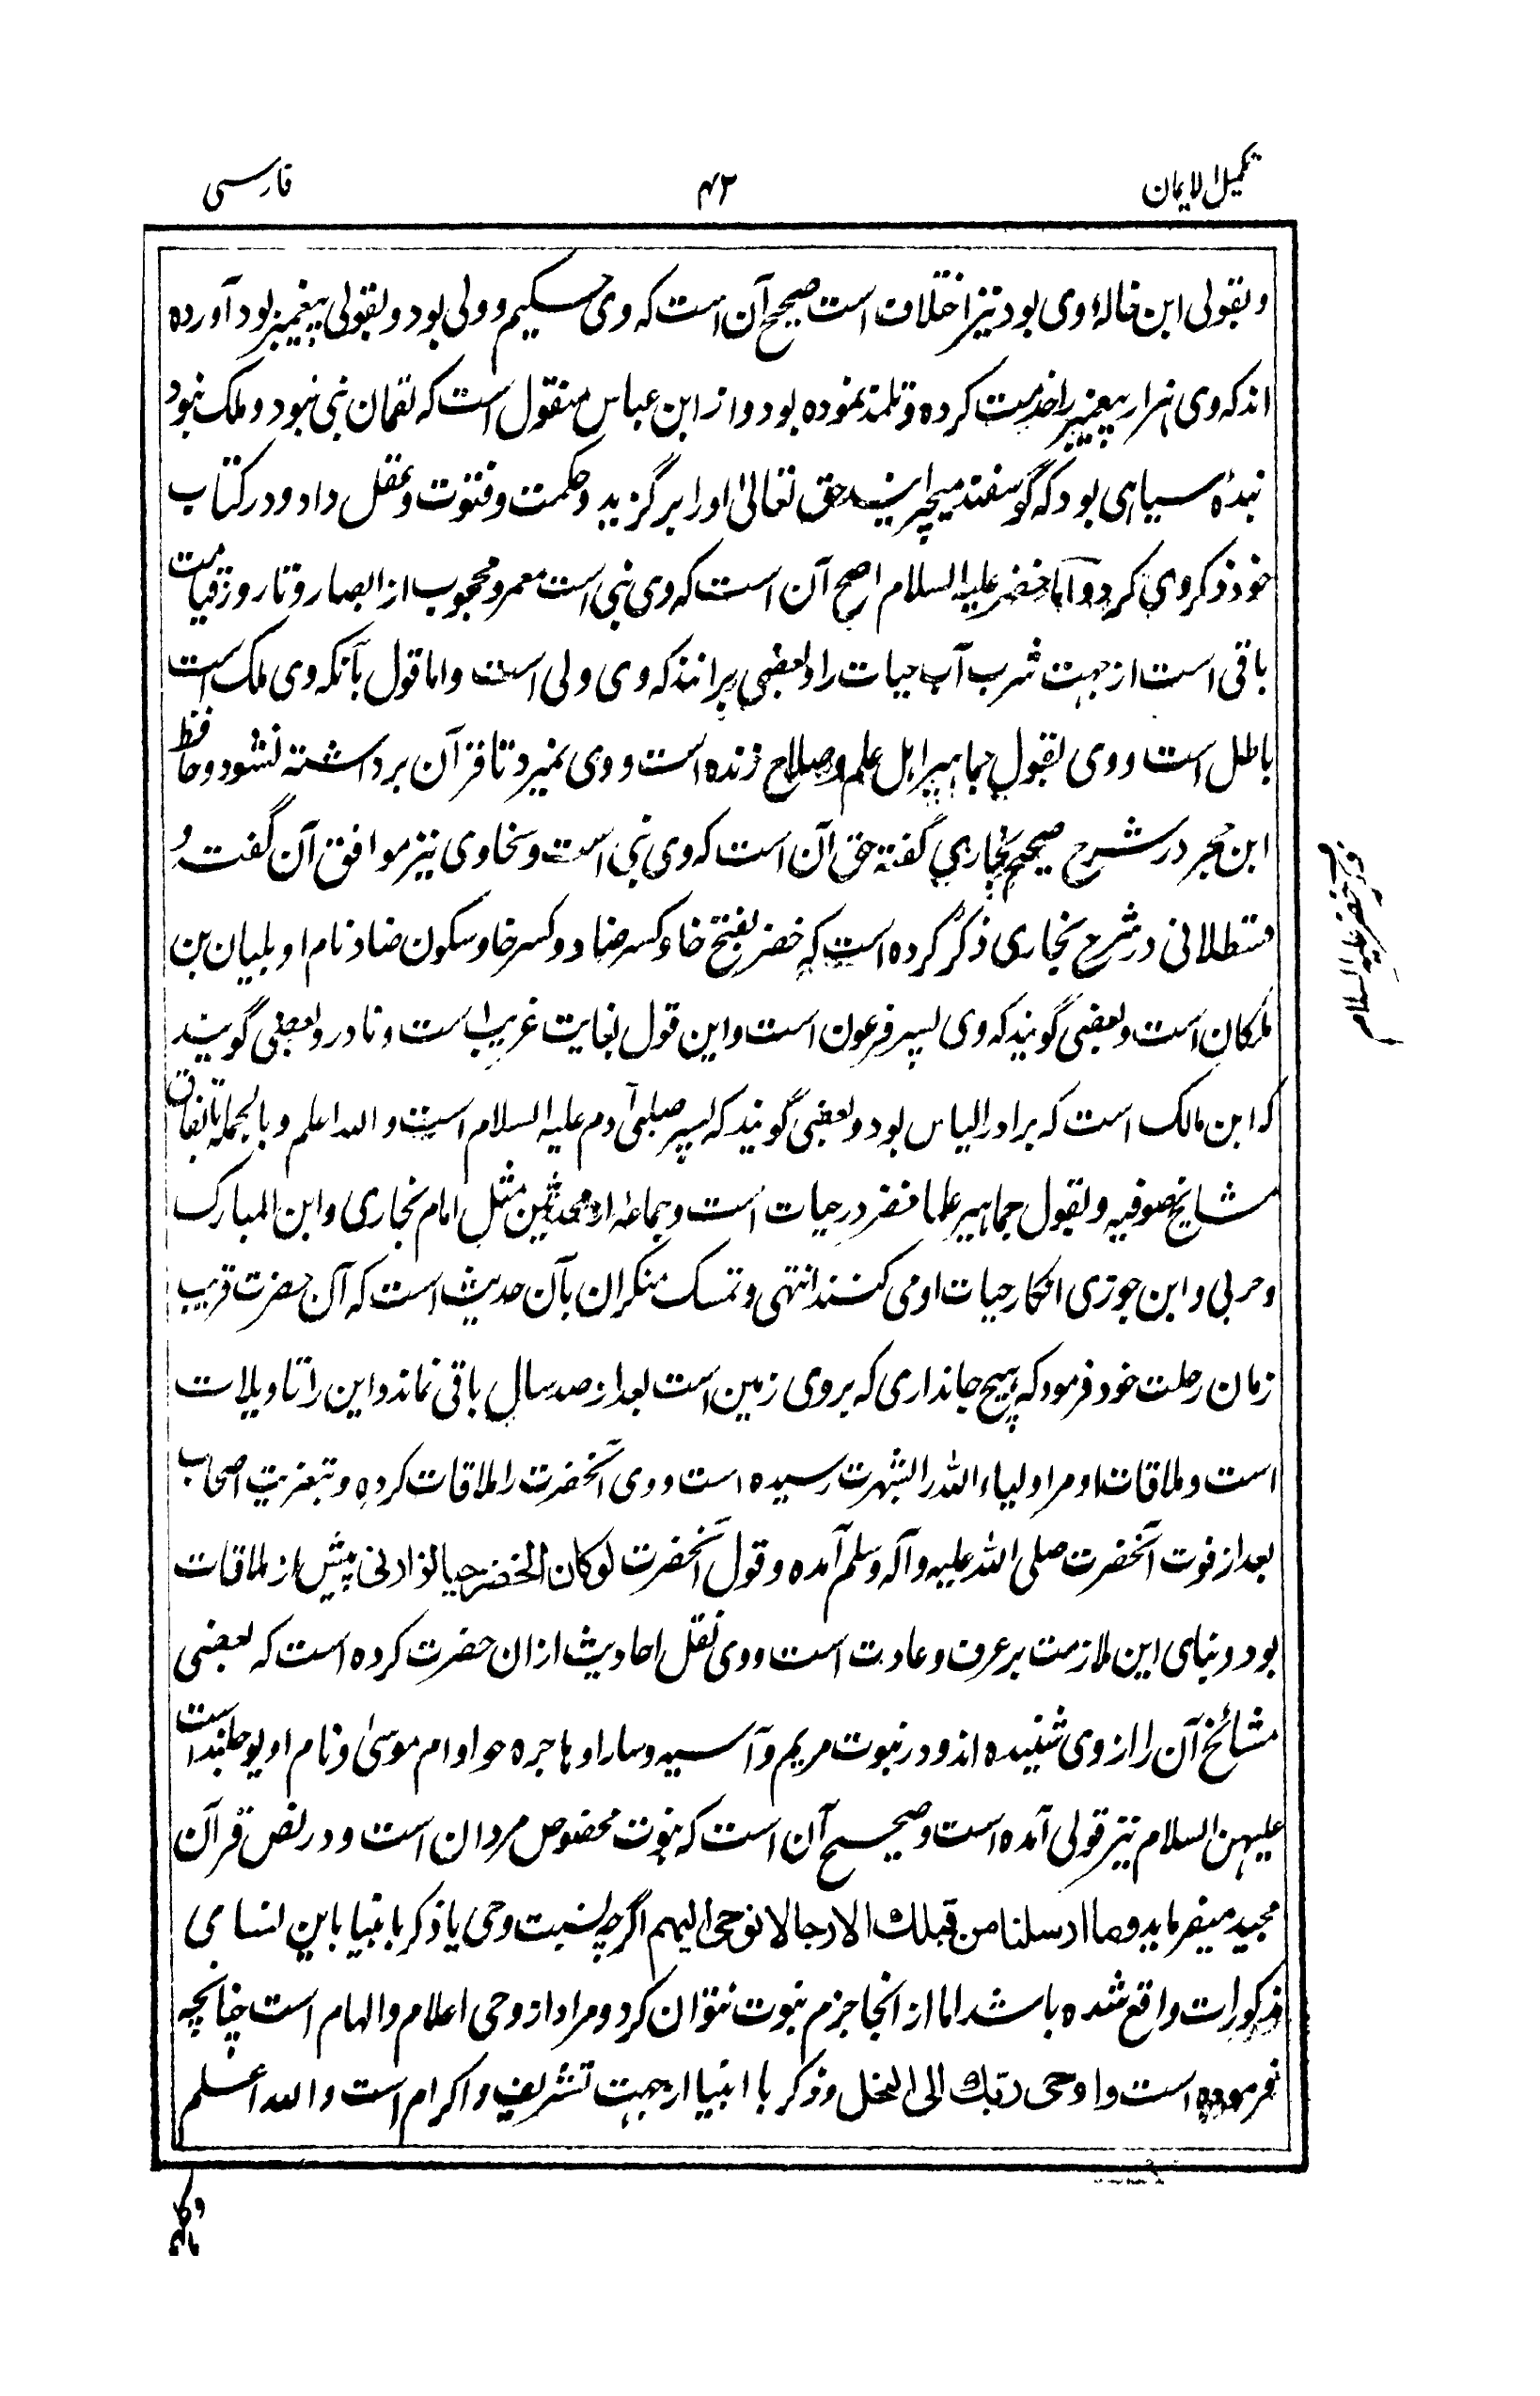 تکمیل الایمان
۴۲
فارسی
وبقولی ابن خالهٔ وی بود نیز اختلاف است صحیح آن است که وی حکیم وولی بود وبقولی پیغمبر بود آورده
اند که وی هزار پیغمبر را خدمت کرده وتلمذ نموده بود واز ابن عباس منقول است که لقمان نبی نبود وملک نبود
بندهٔ سیاهی بود که گوسفند میچرانید حق تعالیٰ او را برگزید وحکمت وفتوت وعقل داد ودر کتاب
خود ذکر وی کرد واما خضر علیه السلام اصح آن است که وی نبی است معمر ومحجوب از ابصار وتا روز قیامت
باقی است از جهت شرب آب حیات را وبعضی برانند که وی ولی است واما قول بآنکه وی ملک است
باطل است ووی بقول جماهیر اهل علم وصلاح زنده است ووی نمیرد تا قرآن برداشته نشود وحافظ
ابن حجر در شرح صحیح بخاری گفته حق آن است که وی نبی است وسخاوی نیز موافق آن گفته و
قسطلانی در شرح بخاری ذکر کرده است که خضر بفتح خا وکسر ضاد وکسر خا وسکون ضاد نام او بلیان بن
ملکان است وبعضی گویند که وی پسر فرعون است واین قول بغایت غریب است ونادر وبعضی گویند
که ابن مالک است که برادر الیاس بود وبعضی گویند که پسر صلبی آدم علیه السلام است والله اعلم وبالجمله باتفاق
مشایخ صوفیه وبقول جماهیر علما خضر در حیات است وجماعهٔ از محدثین مثل امام بخاری وابن المبارک
وحربی وابن جوزی انکار حیات او می کنند انتهی وتمسک منکران بآن حدیث است که آن حضرت قریب
زمان رحلت خود فرمود که هیچ جانداری که بروی زمین است بعد از صد سال باقی نماند واین را تاویلات
است وملاقات او مر اولیاء الله را بشهرت رسیده است ووی آنحضرت را ملاقات کرده وبتعزیت اصحاب
بعد از فوت آنحضرت صلی الله علیه وآله وسلم آمده وقول آنحضرت لوکان الخضر حیا لزادنی پیش از ملاقات
بود وبنای این ملازمت بر عرف وعادت است ووی نقل احادیث ازان حضرت کرده است که بعضی
مشائخ آن را از وی شنیده اند ودر نبوت مریم وآسیه وسارا وهاجره حوا وام موسیٰ ونام او است
علیهن السلام نیز قولی آمده است وصحیح آن است که نبوت مخصوص مردان است ودر نص قرآن
مجید میفرماید وما ارسلنا من قبلک الا رجالا نوحی الیهم اگرچه نسبت وحی یا ذکر با انبیا باین نسای
مذکورات واقع شده باشد اما از انجا جزم نبوت نتوان کرد ومراد از وحی اعلام والهام است چنانچه
فرموده است واوحی ربک الی النحل وذکر با انبیا از جهت تشریف واکرام است والله اعلم